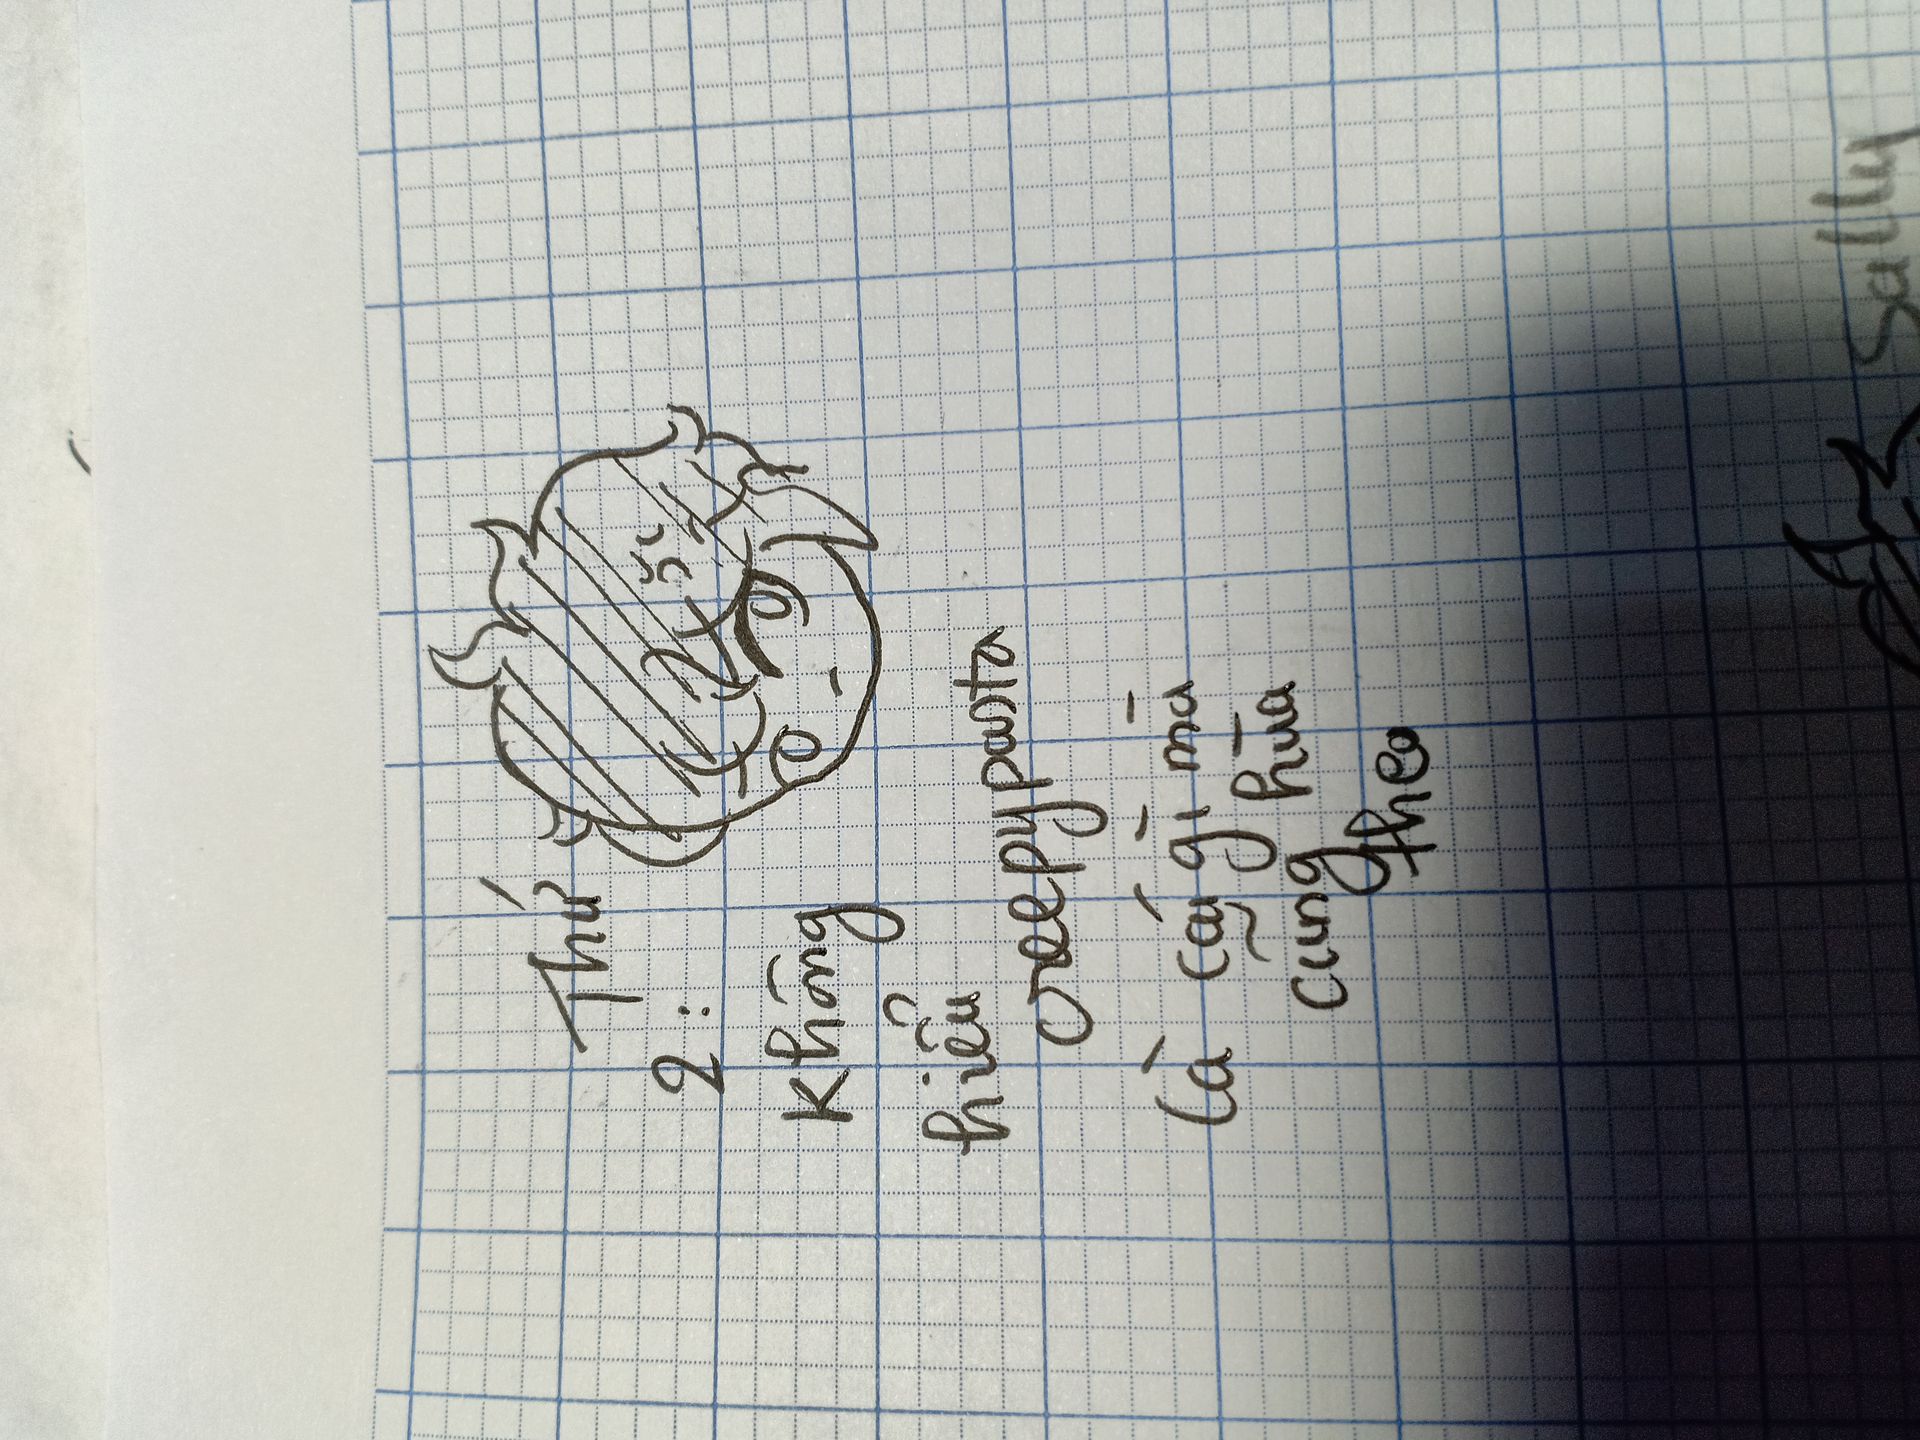 Thứ
2:
Không
hiểu
creepypasta
là cái gì mà
cũng hùa
theo
Sally